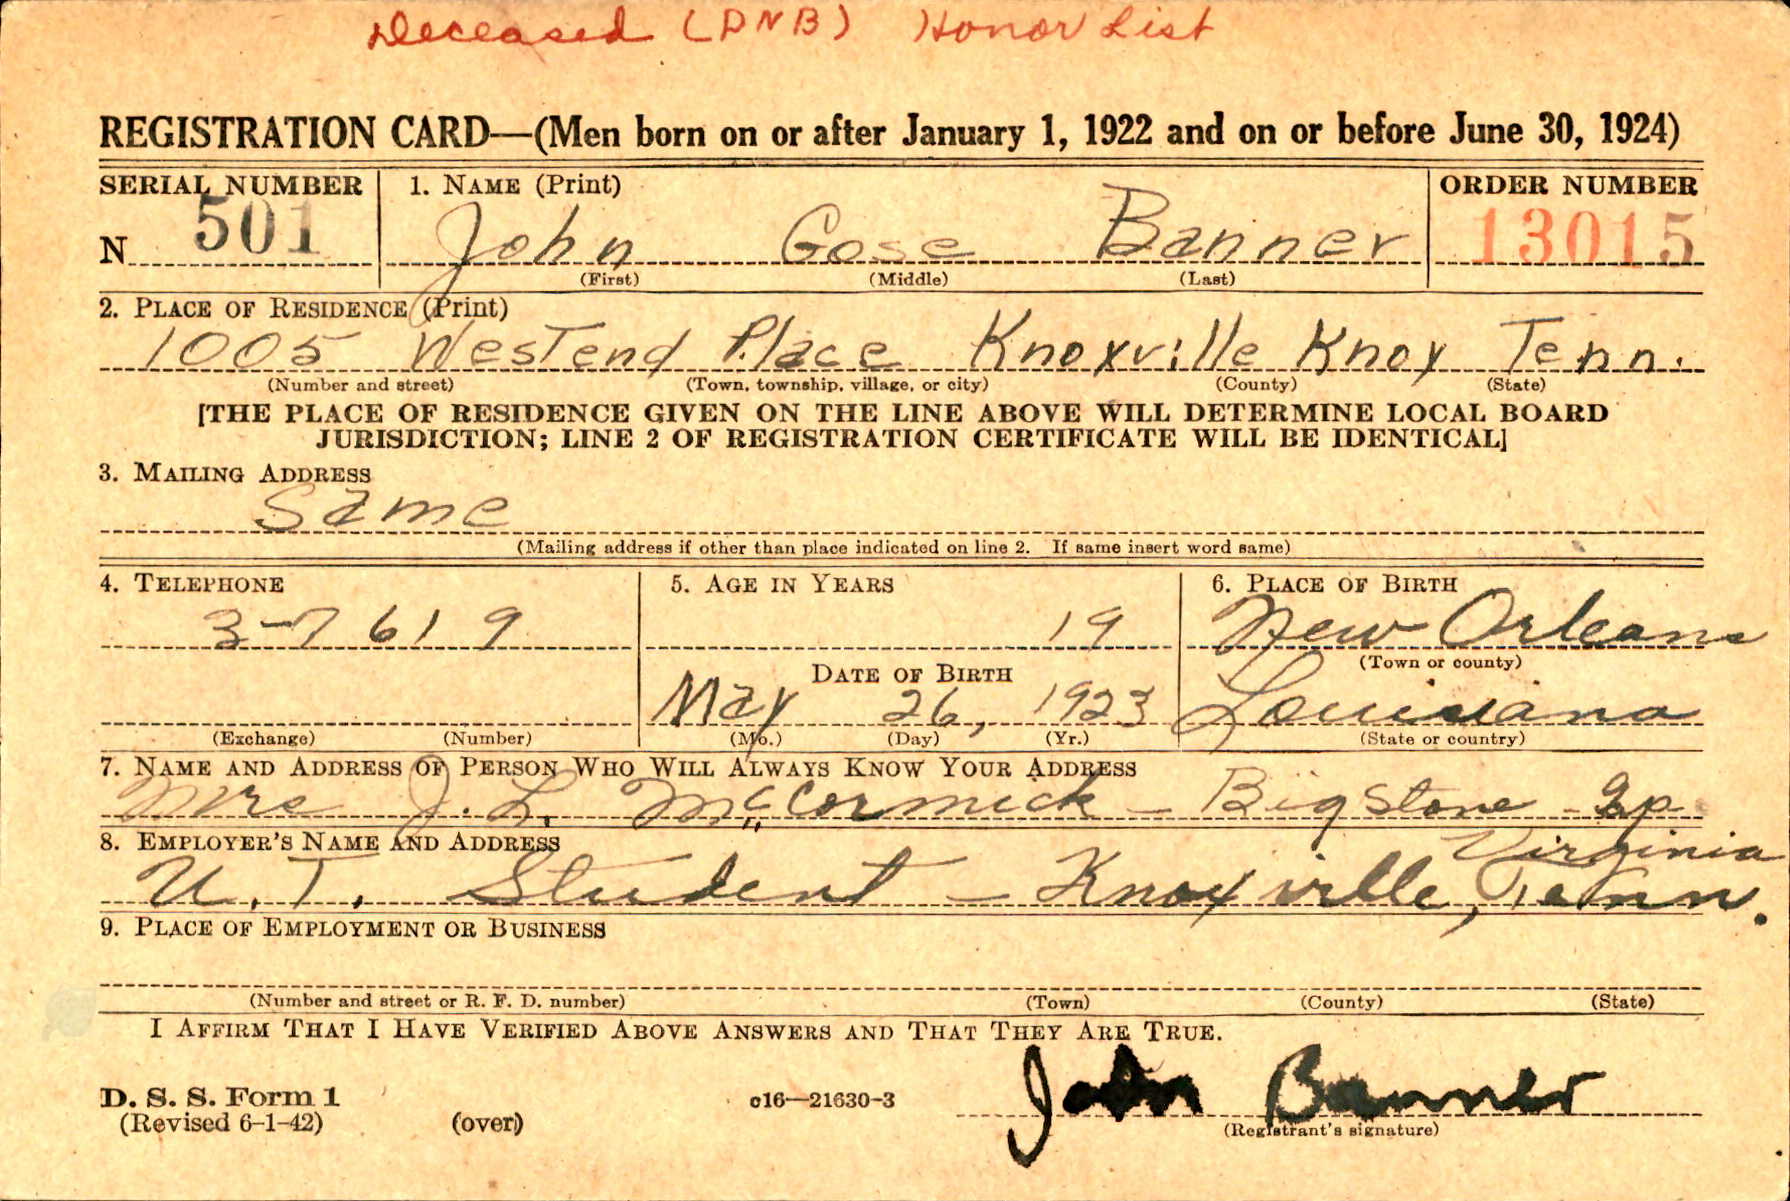 Deceased (DNB) Honor List
REGISTRATION CARD—(Men born on or after January 1, 1922 and on or before June 30, 1924)
SERIAL NUMBER 1. NAME (Print) ORDER NUMBER
N 501 John Gose Banner 13015
(First) (Middle) (Last)
2. PLACE OF RESIDENCE (Print)
1005 Westend Place Knoxville Knox Tenn.
(Number and street) (Town, township, village, or city) (County) (State)
[THE PLACE OF RESIDENCE GIVEN ON THE LINE ABOVE WILL DETERMINE LOCAL BOARD
JURISDICTION; LINE 2 OF REGISTRATION CERTIFICATE WILL BE IDENTICAL]
3. MAILING ADDRESS
Same
(Mailing address if other than place indicated on line 2. If same insert word same)
4. TELEPHONE 5. AGE IN YEARS 6. PLACE OF BIRTH
3-7619 19 New Orleans
DATE OF BIRTH (Town or county)
May 26, 1923 Louisiana
(Exchange) (Number) (Mo.) (Day) (Yr.) (State or country)
7. NAME AND ADDRESS OF PERSON WHO WILL ALWAYS KNOW YOUR ADDRESS
Mrs J. L. McCormick - Big Stone Gp
8. EMPLOYER'S NAME AND ADDRESS Virginia
U.T. Student - Knoxville, Tenn.
9. PLACE OF EMPLOYMENT OR BUSINESS
(Number and street or R. F. D. number) (Town) (County) (State)
I AFFIRM THAT I HAVE VERIFIED ABOVE ANSWERS AND THAT THEY ARE TRUE.
D. S. S. Form 1 c16—21630-3 John Banner
(Revised 6-1-42) (over) (Registrant's signature)